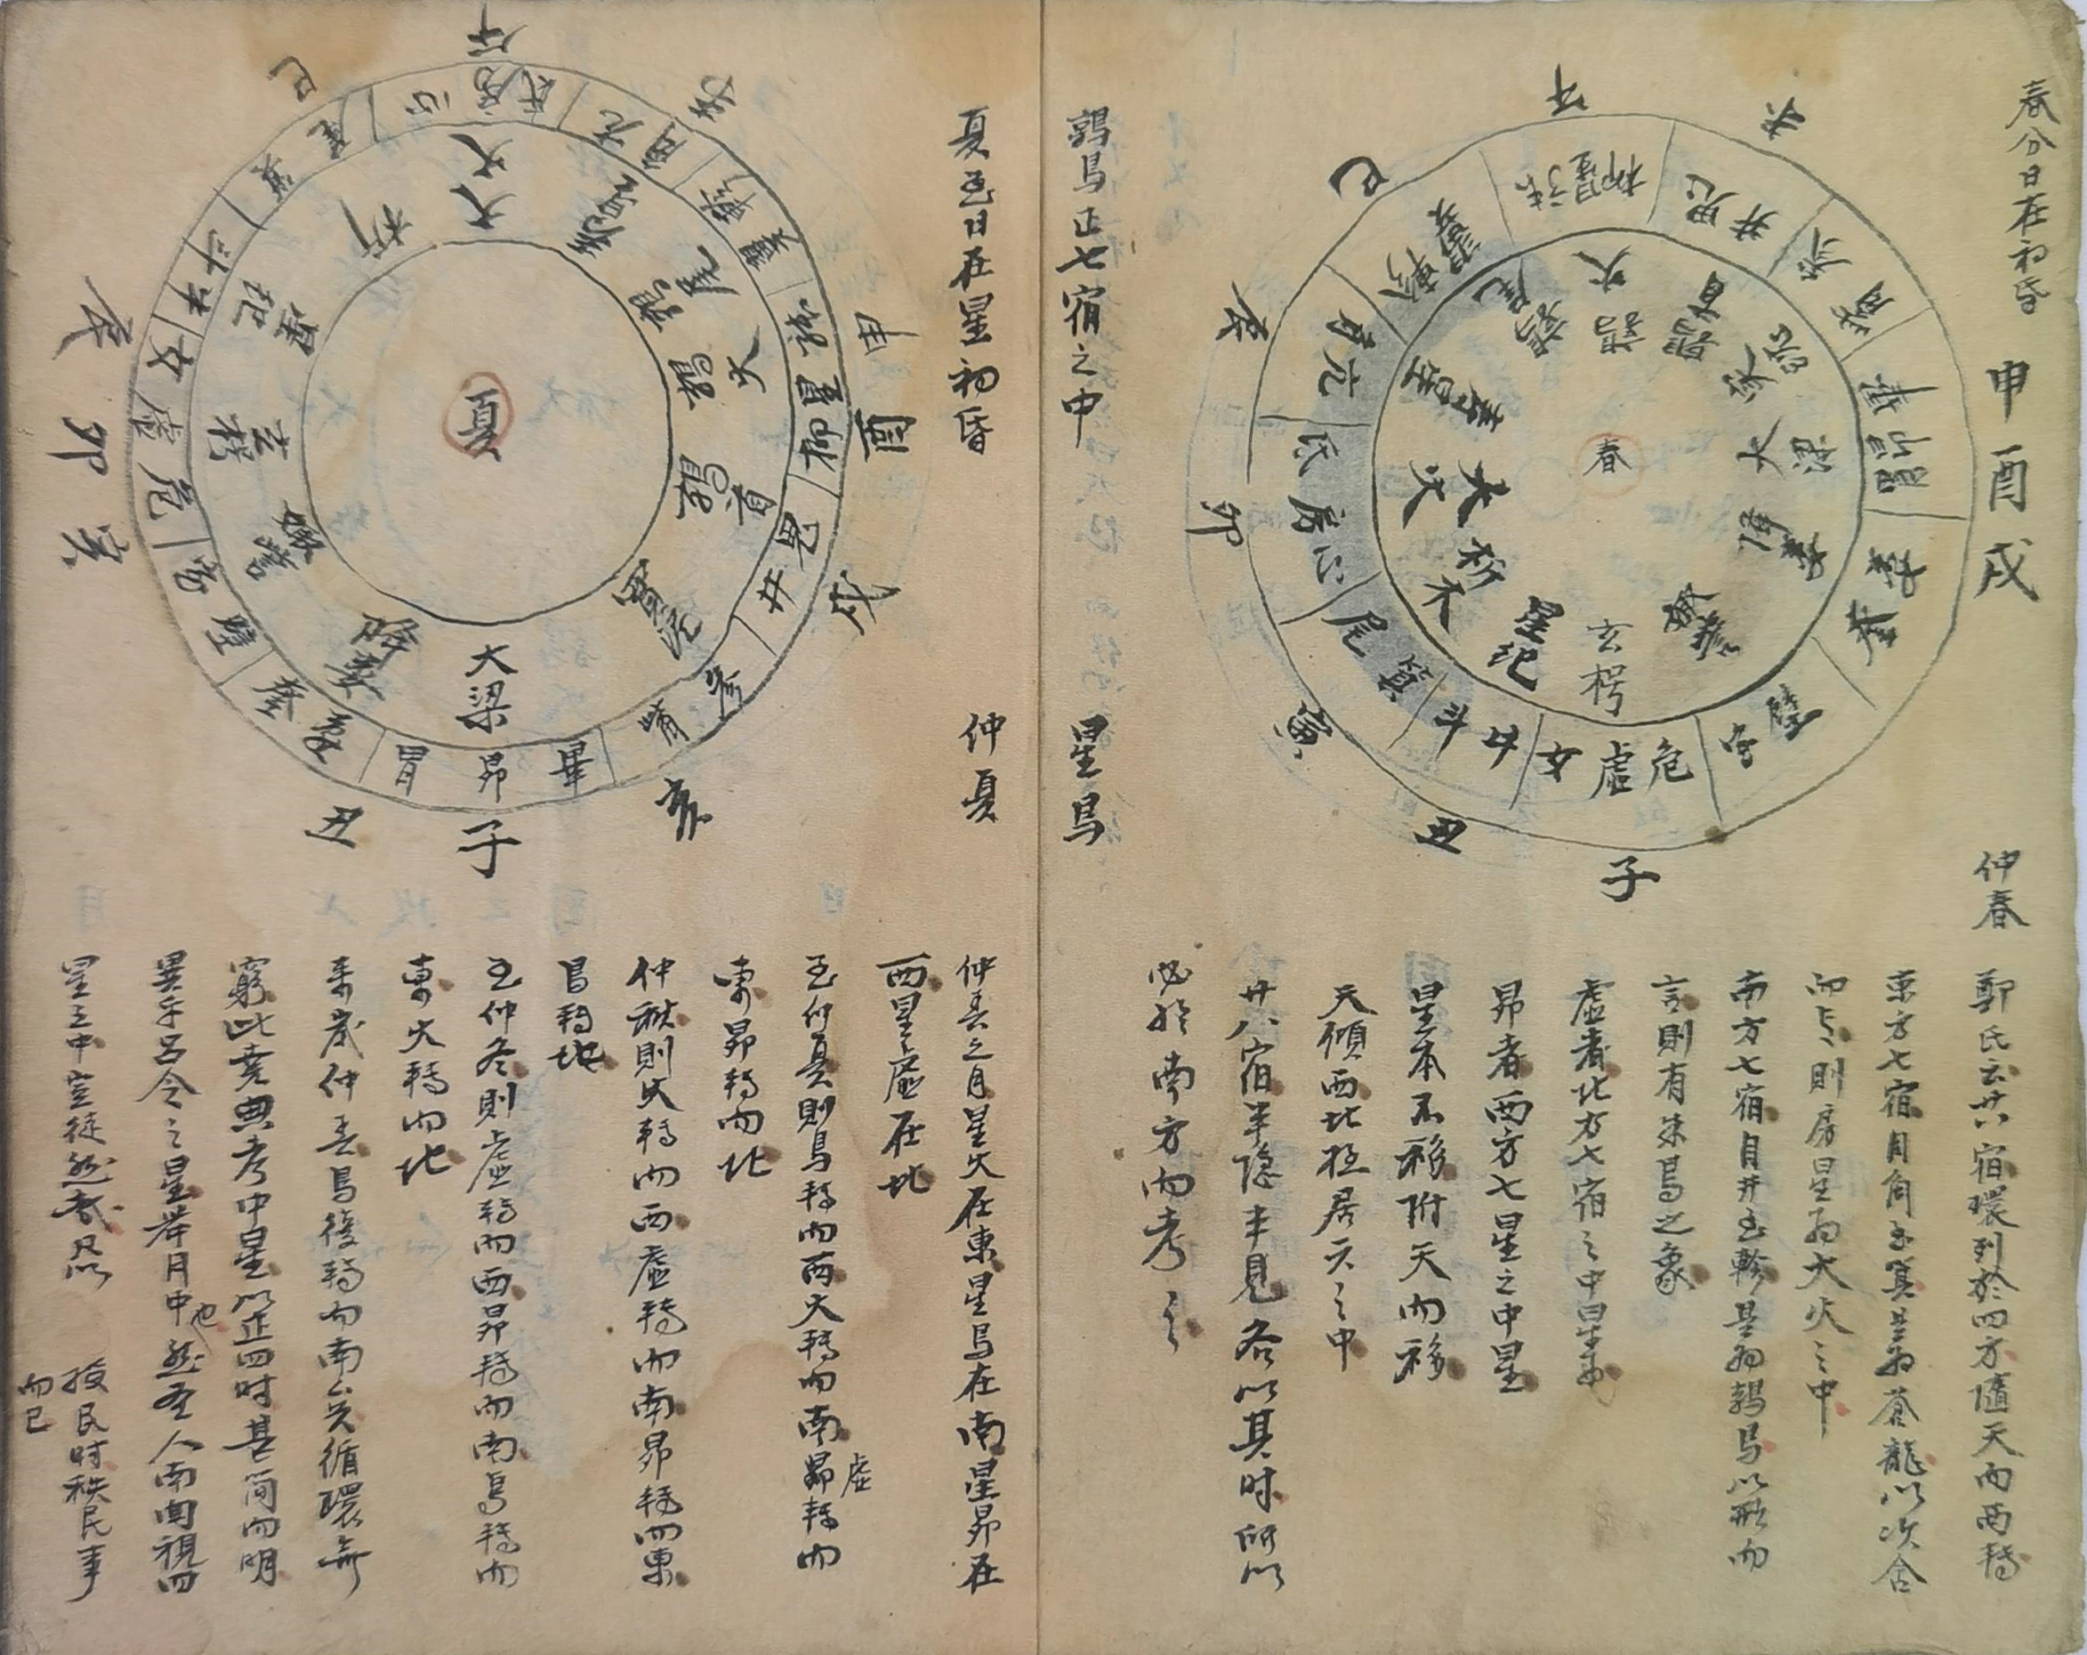 春分日在初昏
申酉戌
仲春
午
未
巳
辰
卯
寅
丑
子
柳星張
井鬼
參觜
畢昴胃
婁奎
壁室
危虛女
牛斗
箕尾
心房氐
亢角
軫翼
鶉火
鶉首
實沈
大梁
降婁
玄枵
星紀
析木
大火
壽星
鶉尾
春
鄭氏云廿八宿環列於四方隨天而西轉
東方七宿自角至箕是為蒼龍以次舍
而言則房星為大火之中
南方七宿自井至軫是為鶉鳥以形而
言則有朱鳥之象
虛者北方七宿之中星也
昴者西方七星之中星
星本不移附天而移
天傾西北極居天之中
廿八宿半隱半見各以其時所以
必於南方而考之
鶉鳥正七宿之中
星鳥
夏至日在星初昏
仲夏
午
未
申
酉
戌
亥
子
丑
寅
卯
辰
巳
氐房心
尾箕
斗牛
女虛危
室壁
奎婁
胃昴畢
觜參
井鬼
柳星張
翼軫
角亢
大火
析木
星紀
玄枵
降婁
大梁
實沈
鶉首
鶉火
鶉尾
壽星
夏
仲春之月星火在東星鳥在南星昴在
西星虛在北
至仲夏則鳥轉而西火轉而南昴轉而
虛
東昴轉而北
仲秋則火轉而西虛轉而南昴轉而東
鳥轉北
至仲冬則虛轉而西昴轉而南鳥轉而
東火轉而北
來歲仲春鳥復轉而南矣循環無
窮此堯典考中星以正四時甚簡而明
異乎呂令之星舉月中也然聖人南面視四
星之中豈徒然哉凡以
授民時秩民事
而已